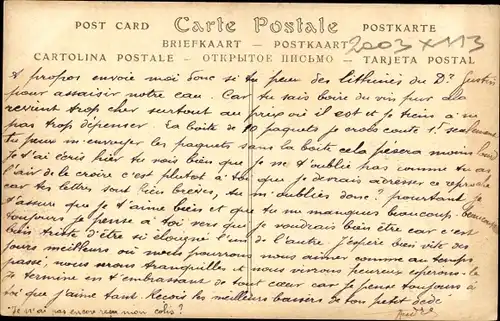 POST CARD Carte Postale POSTKARTE
BRIEFKAART — POSTKAART 2003 X 113
CARTOLINA POSTALE — ОТКРЫТОЕ ПИСЬМО — TARJETA POSTAL
A propos envoie moi donc si tu peux des lithinés du Dr Gustin
pour assaisir notre eau. Car tu sais boire du vin pur cela
revient trop cher surtout au prix où il est et je tiens à ne
pas trop dépenser. La boîte de 10 paquets je crois coute 1f seulement
Tu peux m'envoyer les paquets sans la boîte cela pèsera moins lourd
Je t'ai écris hier tu vois bien que je ne t'oublie pas comme tu as
l'air de le croire c'est plutôt à toi que je devrais adresser ce reproche
car tes lettres sont bien brèves, tu m'oublies donc? pourtant je
t'assure que je t'aime bien et que tu me manques beaucoup. beaucoup
toujours je pense à toi vers je voudrais bien être car c'est
bien triste d'être si éloigné l'un de l'autre. J'espère bien vite des
jours meilleurs où nous pourrons nous aimer comme au temps
passé, nous serons tranquilles et nous vivrons heureux espérons-le
Je termine en t'embrassant de tout cœur car je pense toujours à
toi que j'aime tant. Reçois les meilleurs baisers de ton petit dédé
Je n'ai pas encore reçu mon colis? André